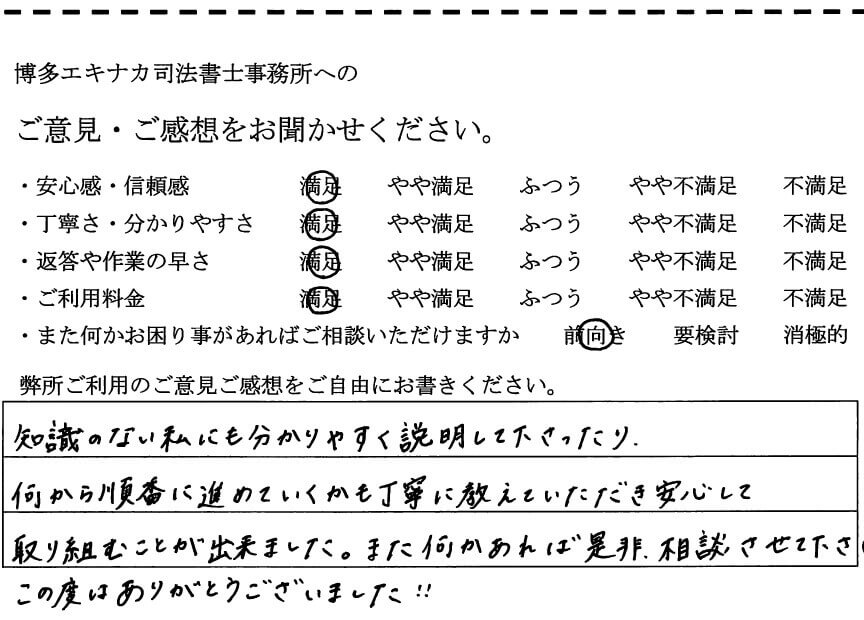 博多エキナカ司法書士事務所への
ご意見・ご感想をお聞かせください。
・安心感・信頼感 満足 やや満足 ふつう やや不満足 不満足
・丁寧さ・分かりやすさ 満足 やや満足 ふつう やや不満足 不満足
・返答や作業の早さ 満足 やや満足 ふつう やや不満足 不満足
・ご利用料金 満足 やや満足 ふつう やや不満足 不満足
・また何かお困り事があればご相談いただけますか 前向き 要検討 消極的
弊所ご利用のご意見ご感想をご自由にお書きください。
知識のない私にも分かりやすく説明して下さったり、
何から順番に進めていくかも丁寧に教えていただき安心して
取り組むことが出来ました。また何かあれば是非、相談させて下さい
この度はありがとうございました!!